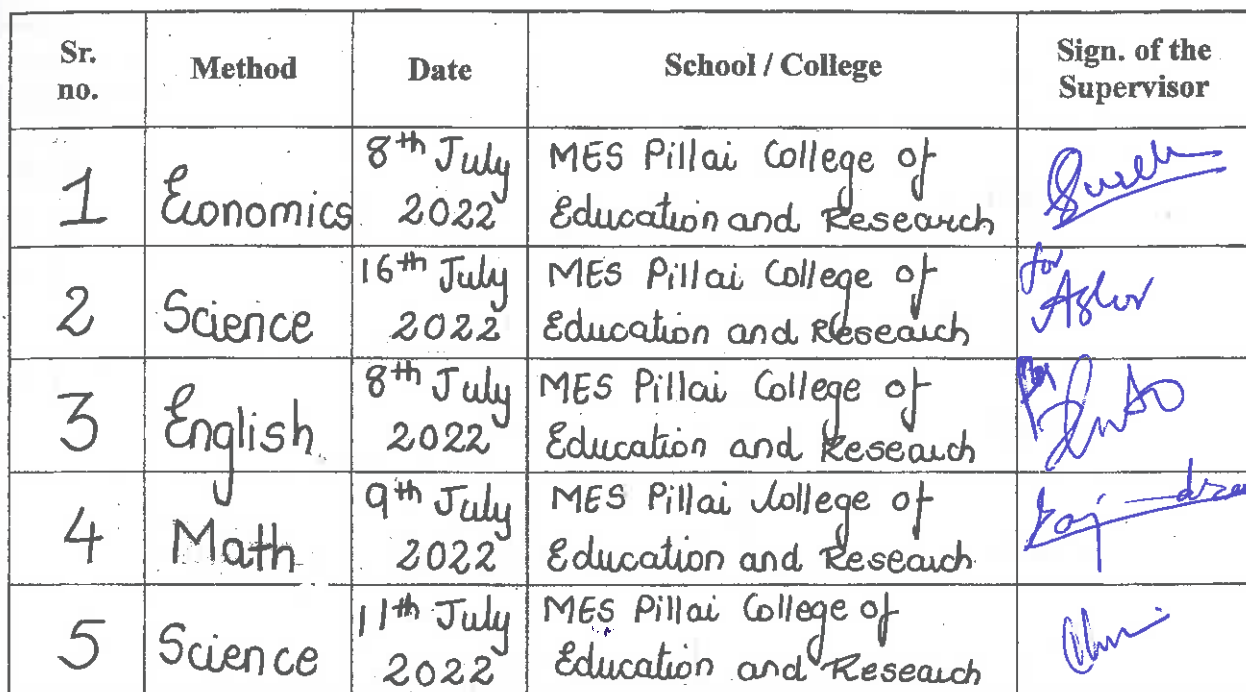 Sr. no. Method Date School / College Sign. of the Supervisor
1 Economics 8th July 2022 MES Pillai College of Education and Research
2 Science 16th July 2022 MES Pillai College of Education and Research for
3 English 8th July 2022 MES Pillai College of Education and Research
4 Math 9th July 2022 MES Pillai College of Education and Research
5 Science 11th July 2022 MES Pillai College of Education and Research